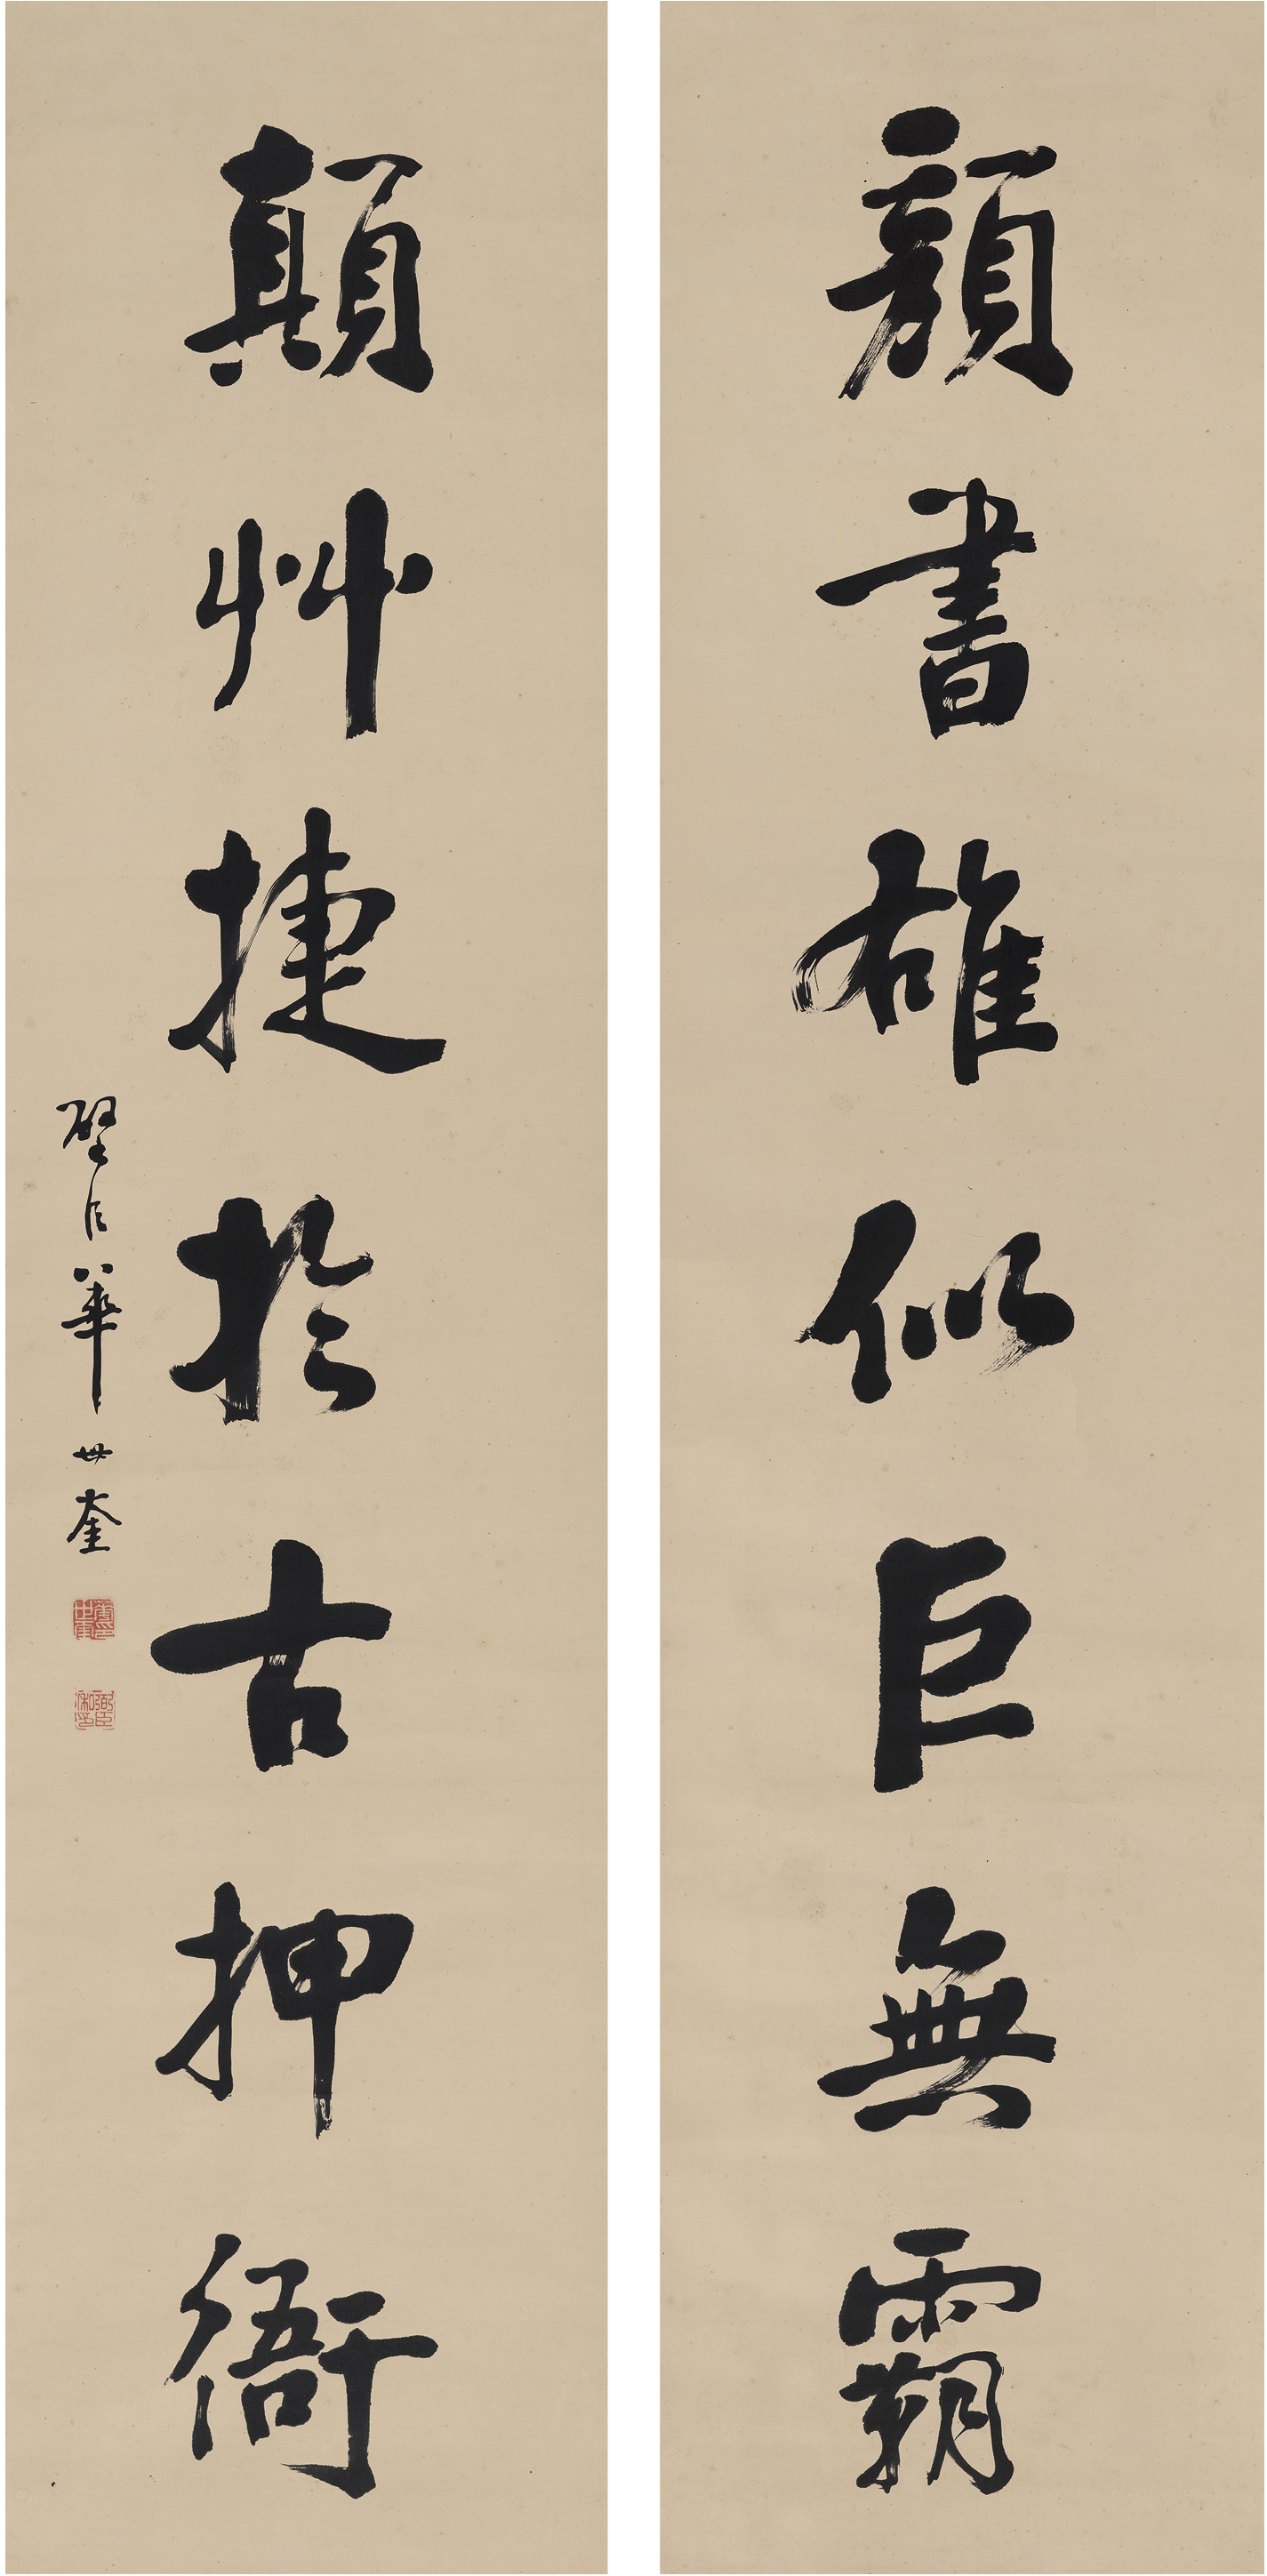 顏書雄似巨無霸
顛艸捷於古押衙
璧臣華世奎